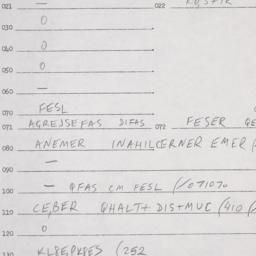 021 — 022
030 O
040 O
050 O
060 —
070 FESL
071 AGREJSEFAS DIFAS 072 FESER
080 ANEMER INAHILCERNER EMER
090 —
100 — QFAS CM FESL (/071070
110 CEBER QHALT+ DIS+MUC (410
120 O
130 (252